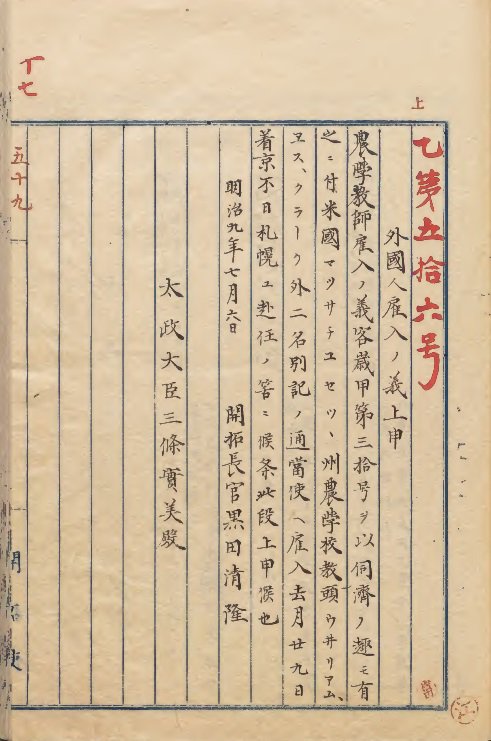 上
乙第五拾六号
外國人雇入ノ義上申
農學教師雇入ノ義客歳甲第三拾号ヲ以伺濟ノ趣モ有
之ニ付米國マツサチユセツヽ州農學校教頭ウ井リアム、
ヱス、クラーク外二名別記ノ通當使ヘ雇入去月廿九日
着京不日札幌ヱ赴任ノ筈ニ候条此段上申候也
明治九年七月六日
開拓長官黒田清隆
太政大臣三條實美殿
丁七
五十九
開拓使